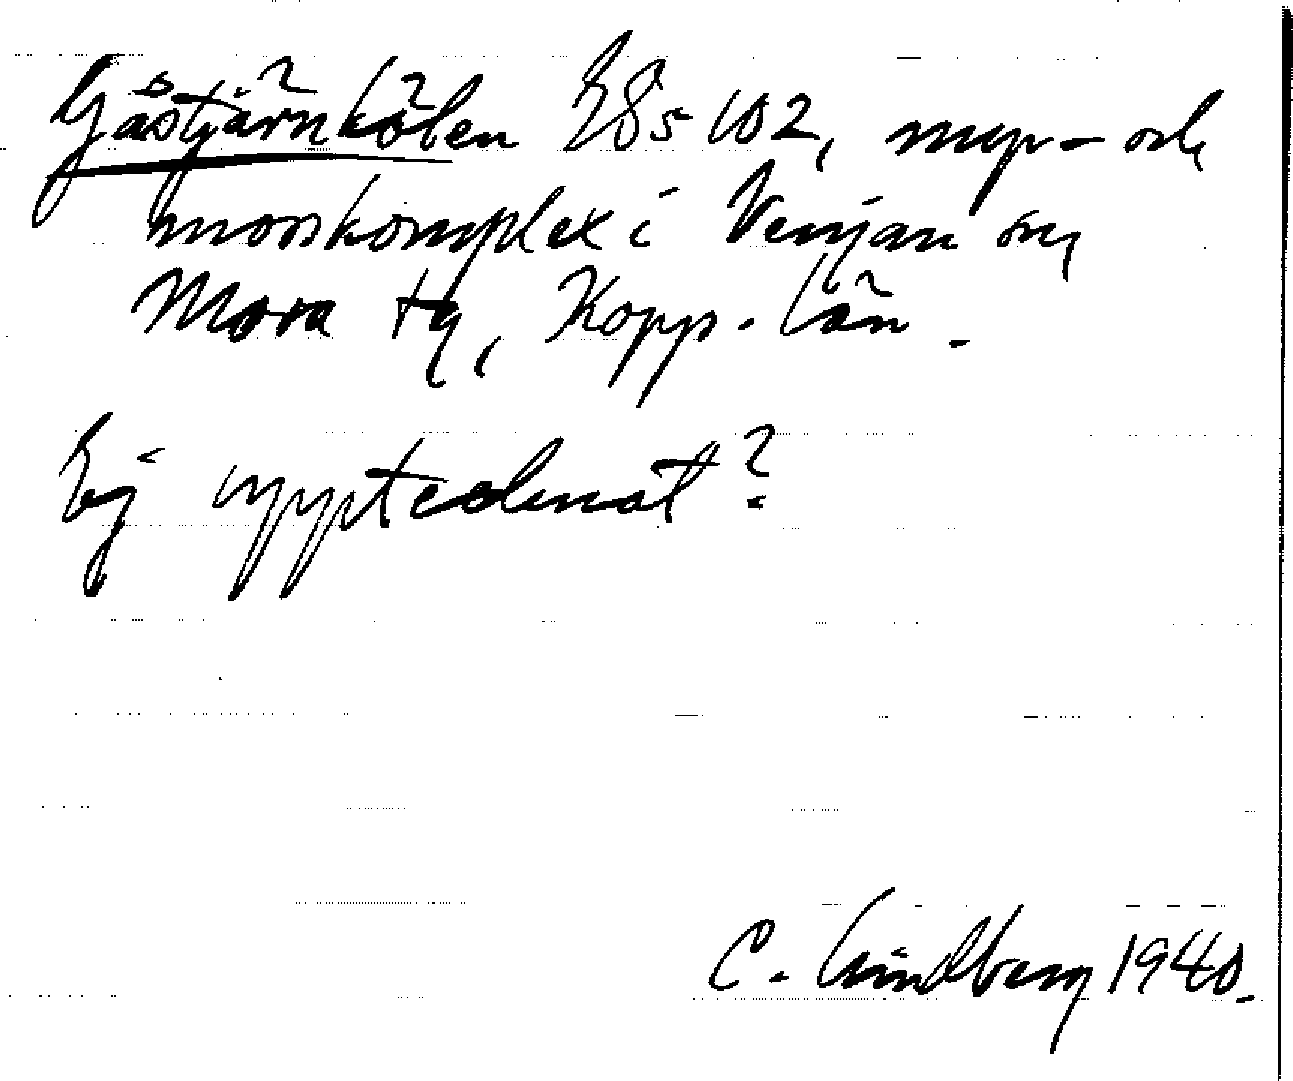 Gåstjärnkölen E8s 102, myr- och
mosskomplex i Venjan och
Mora tg, Kopp. län.
Ej upptecknat?
C. Lindberg 1940.